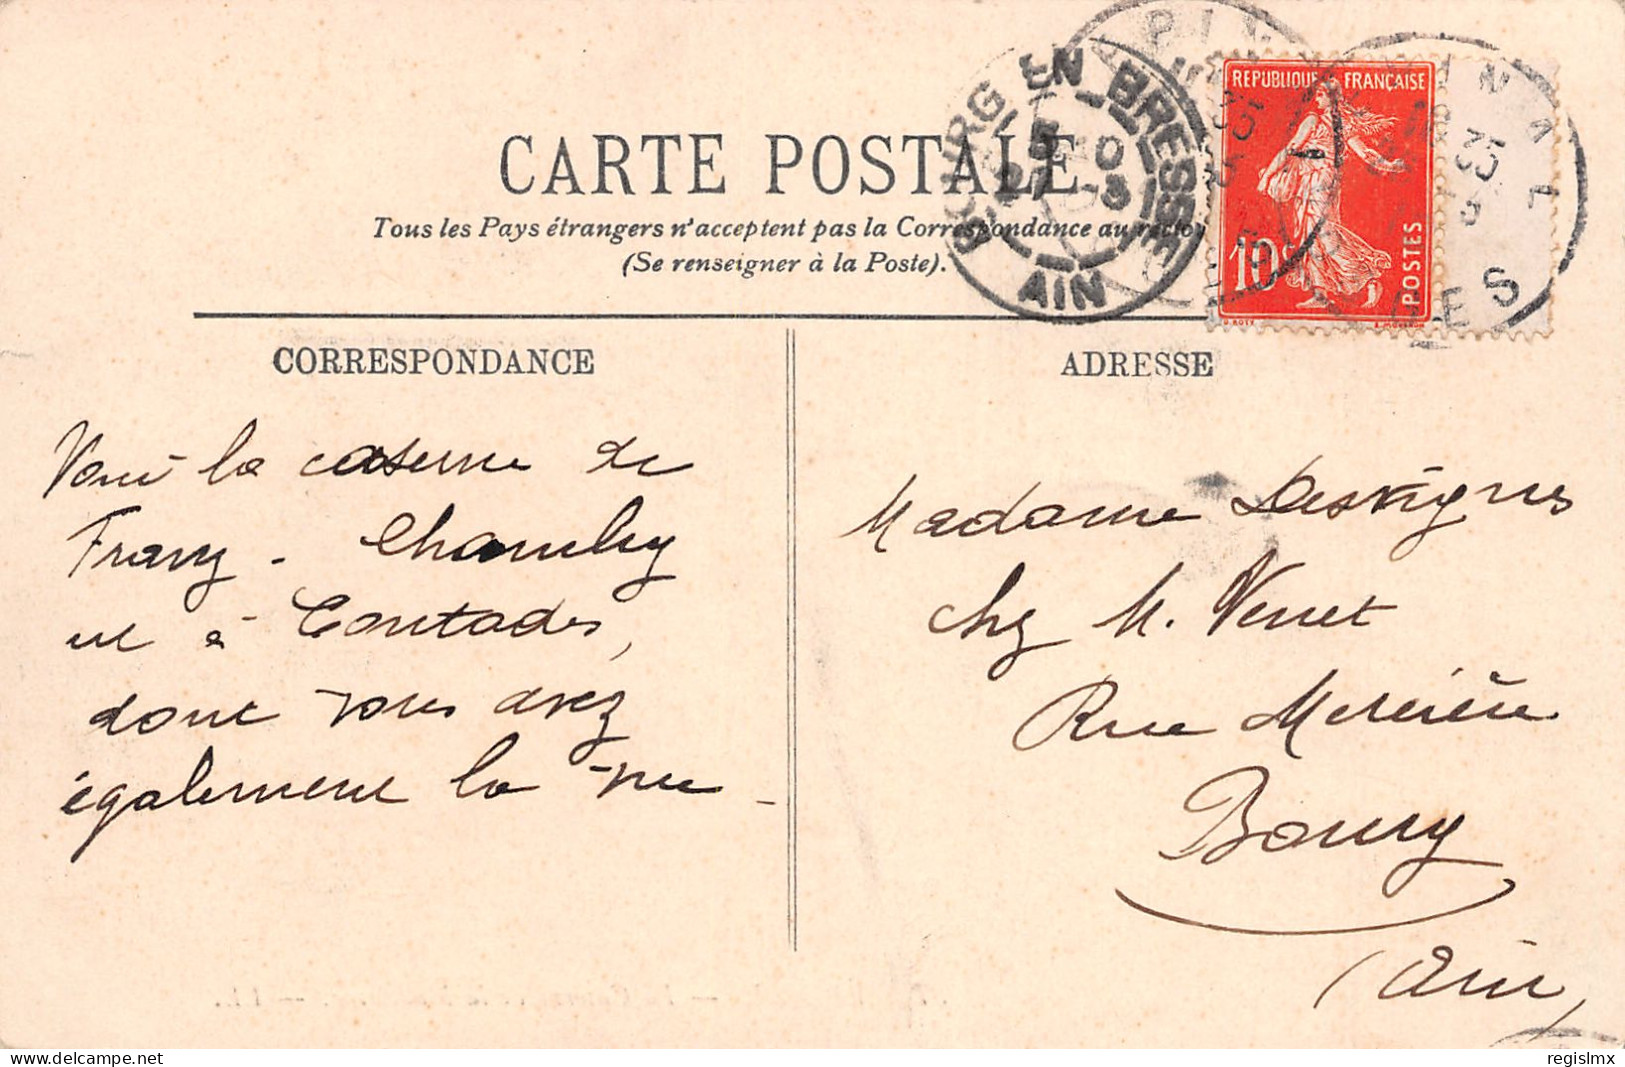 CARTE POSTALE
Tous les Pays étrangers n'acceptent pas la Correspondance au recto
(Se renseigner à la Poste).
BOURG EN BRESSE
AIN
REPUBLIQUE FRANÇAISE
10c
POSTES
CORRESPONDANCE
ADRESSE
Voici la caserne de
Franz - Chambry
est à Contades,
dont vous avez
également la vue -
Madame Desvignes
chez M. Venet
Rue Mercière
Bourg
(Ain)
regislmx